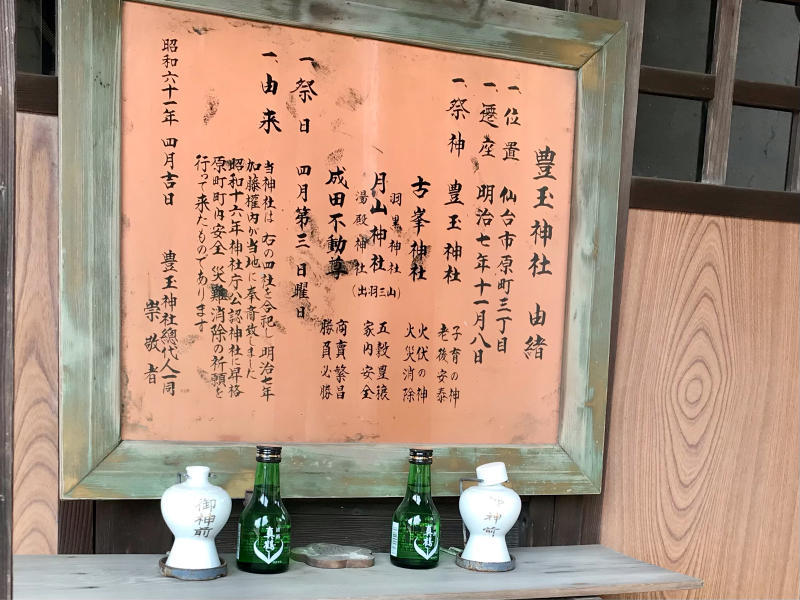 豊玉神社 由緒
一、位置 仙台市原町三丁目
一、遷座 明治七年十一月八日
一、祭神 豊玉神社 子育の神 老後安泰
古峯神社 火伏の神 火災消除
羽黒神社
月山神社 (出羽三山) 五穀豊穣 家内安全
湯殿神社
成田不動尊 商賣繁昌 勝負必勝
一、祭日 四月第三日曜日
一、由来 当神社は右の四社を合祀し明治七年
加藤權内が当地に奉斎致しました
昭和十六年神社庁公認神社に昇格
原町町内安全 災難消除の祈願を
行って来たものであります
昭和六十一年 四月吉日
豊玉神社總代人一同
崇敬者
御神前
真鶴
真鶴
御神前